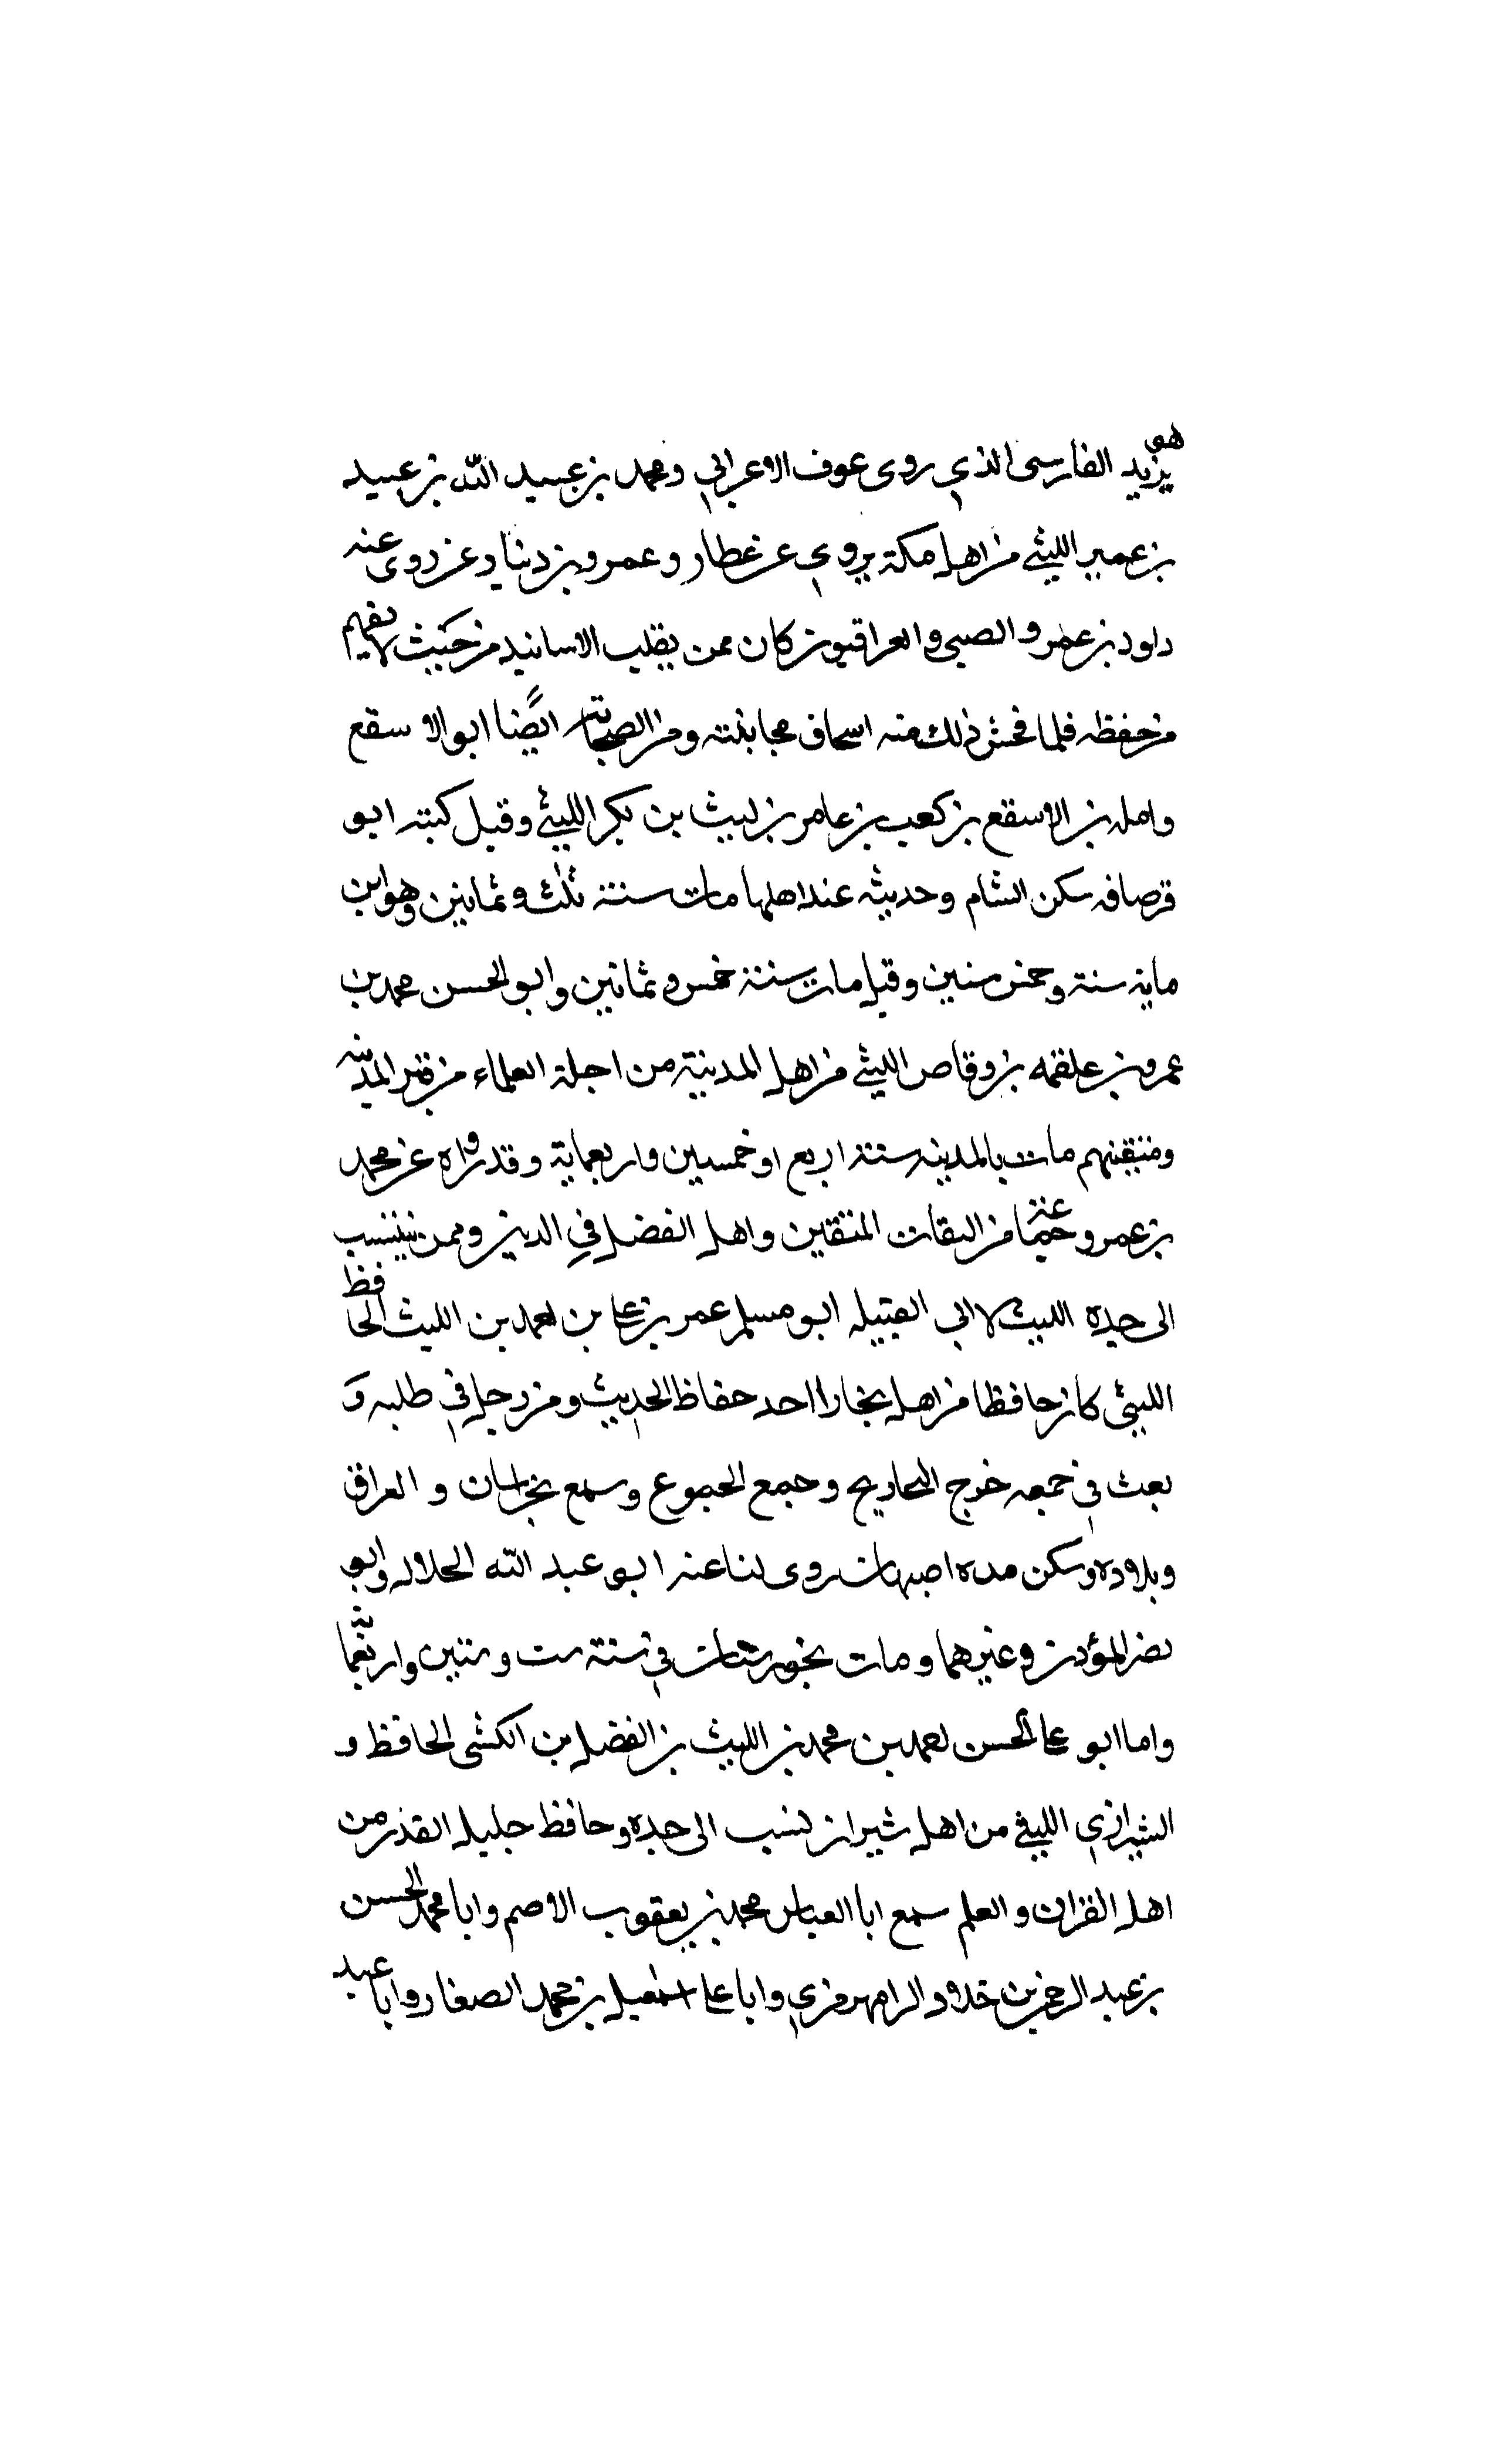 هو يزيد الفارسي الذي روى عوف الاعرابي ومحمد بن عبيد الله بن عبيد
بن عمير الليثي من اهل مكة يروي عن عطار وعمرو بن دينار وعن روى عنه
داود بن عمرو الضبي والعراقيون كان ممن يقلب الاسانيد من حيث لا يفهم
من حفظه فلما فحش ذلك منه استحق مجانبته ومن الصحابة ايضا ابو الاسقع
واثله بن الاسقع بن كعب بن عامر بن ليث بن بكر الليثي وقيل كنيته ابو
قرصافه سكن الشام وحديثه عند اهلها مات سنة ثلث وثمانين وهو ابن
ماية سنة وخمس سنين وقيل مات سنة خمس وثمانين وابو الحسن محمد بن
عمرو بن علقمه بن وقاص الليثي من اهل المدينة من اجلة العلماء من المدينة
ومتقنيهم مات بالمدينه سنة اربع او خمسين واربعماية وقد عن محمد
بن عمرو من الثقات المتقنين واهل الفضل في الدين وممن ينسب
الى جده الليث لا الى القبيله ابو مسلم عمر بن علي بن احمد بن الليث الحافظ
الليثي كان حافظا من اهل بخارا احد حفاظ الحديث ومن رحل في طلبه و
بعث في جمعه خرج التخاريج وجمع الجموع وسمع بخراسان و العراق
وبلاده وسكن مده اصبهان روى لنا عنه ابو عبد الله الحلال وابو
نصر المؤذن وغيرهما ومات بخورستان في سنة ست وستين واربعماية
واما ابو علي الحسن احمد بن محمد بن الليث بن الفضل بن الكشي الحافظ و
الشيرازي الليثي من اهل شيراز نسب الى جده وحافظ جليل القدر من
اهل القران و العلم سمع ابا العباس محمد بن يعقوب الاصم وابا محمد الحسن
بن عبد الرحمن بن خلاد الرامهرمزي وابا علي اسمعيل بن محمد الصفار وابا عبد